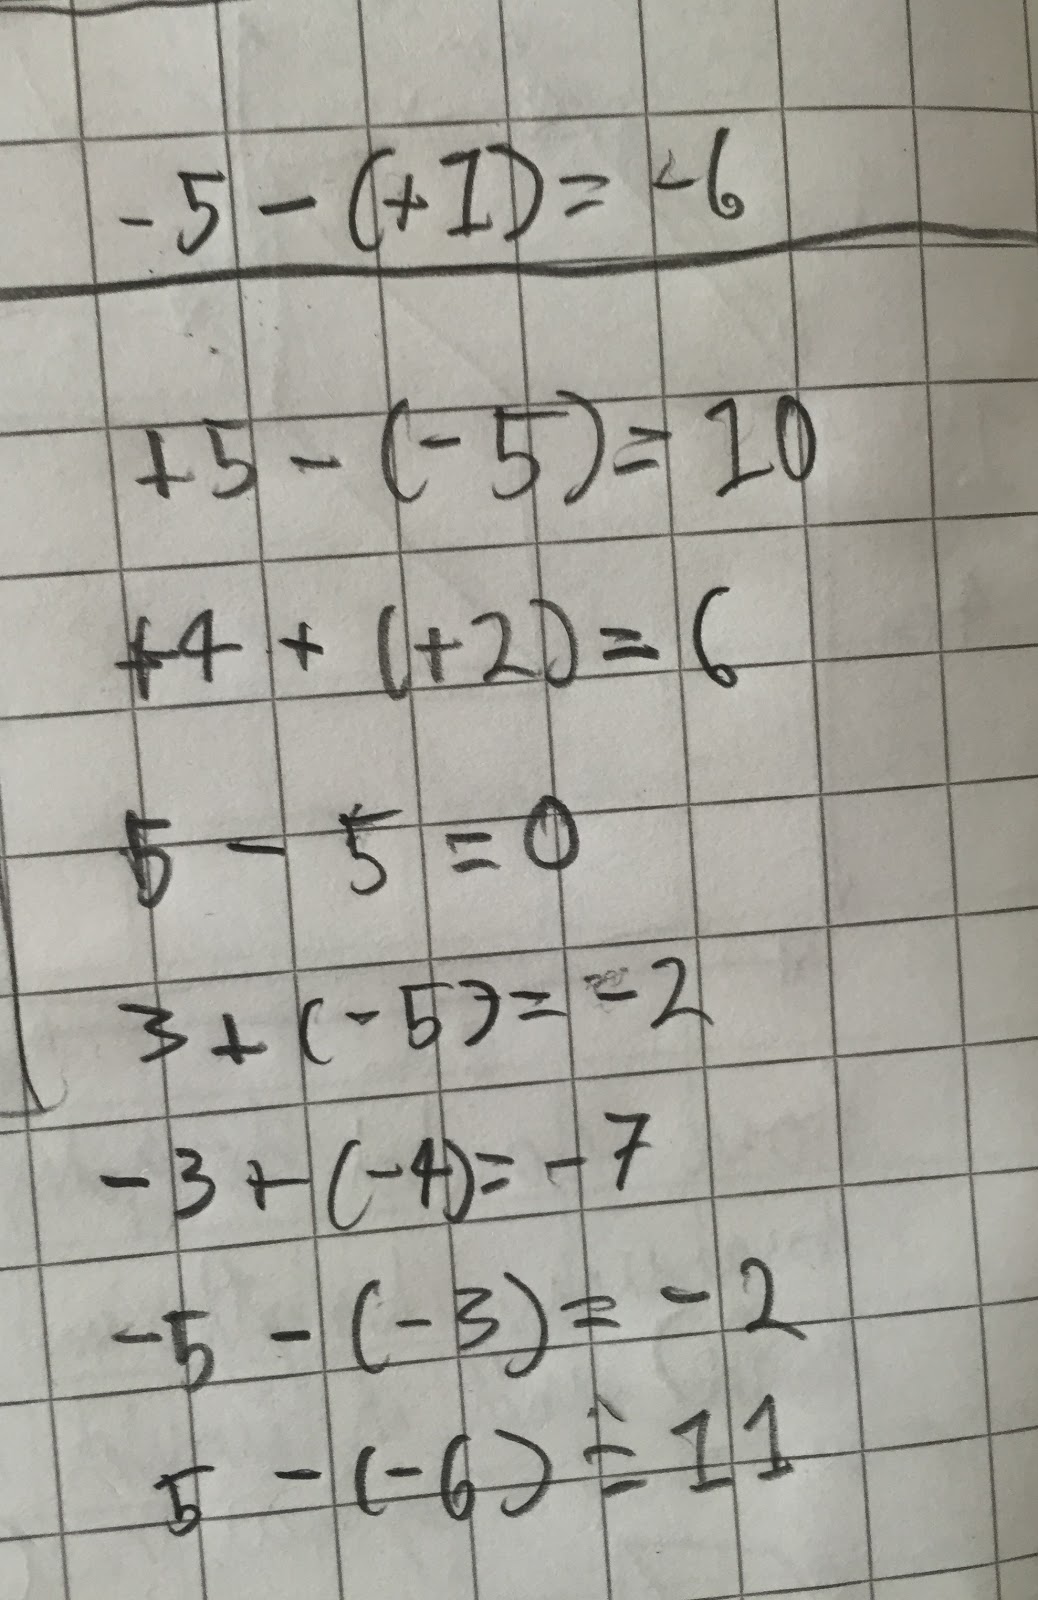 -5 - (+1) = -6
+5 - (-5) = 10
+4 + (+2) = 6
5 - 5 = 0
3 + (-5) = -2
-3 + (-4) = -7
-5 - (-3) = -2
5 - (-6) = 11